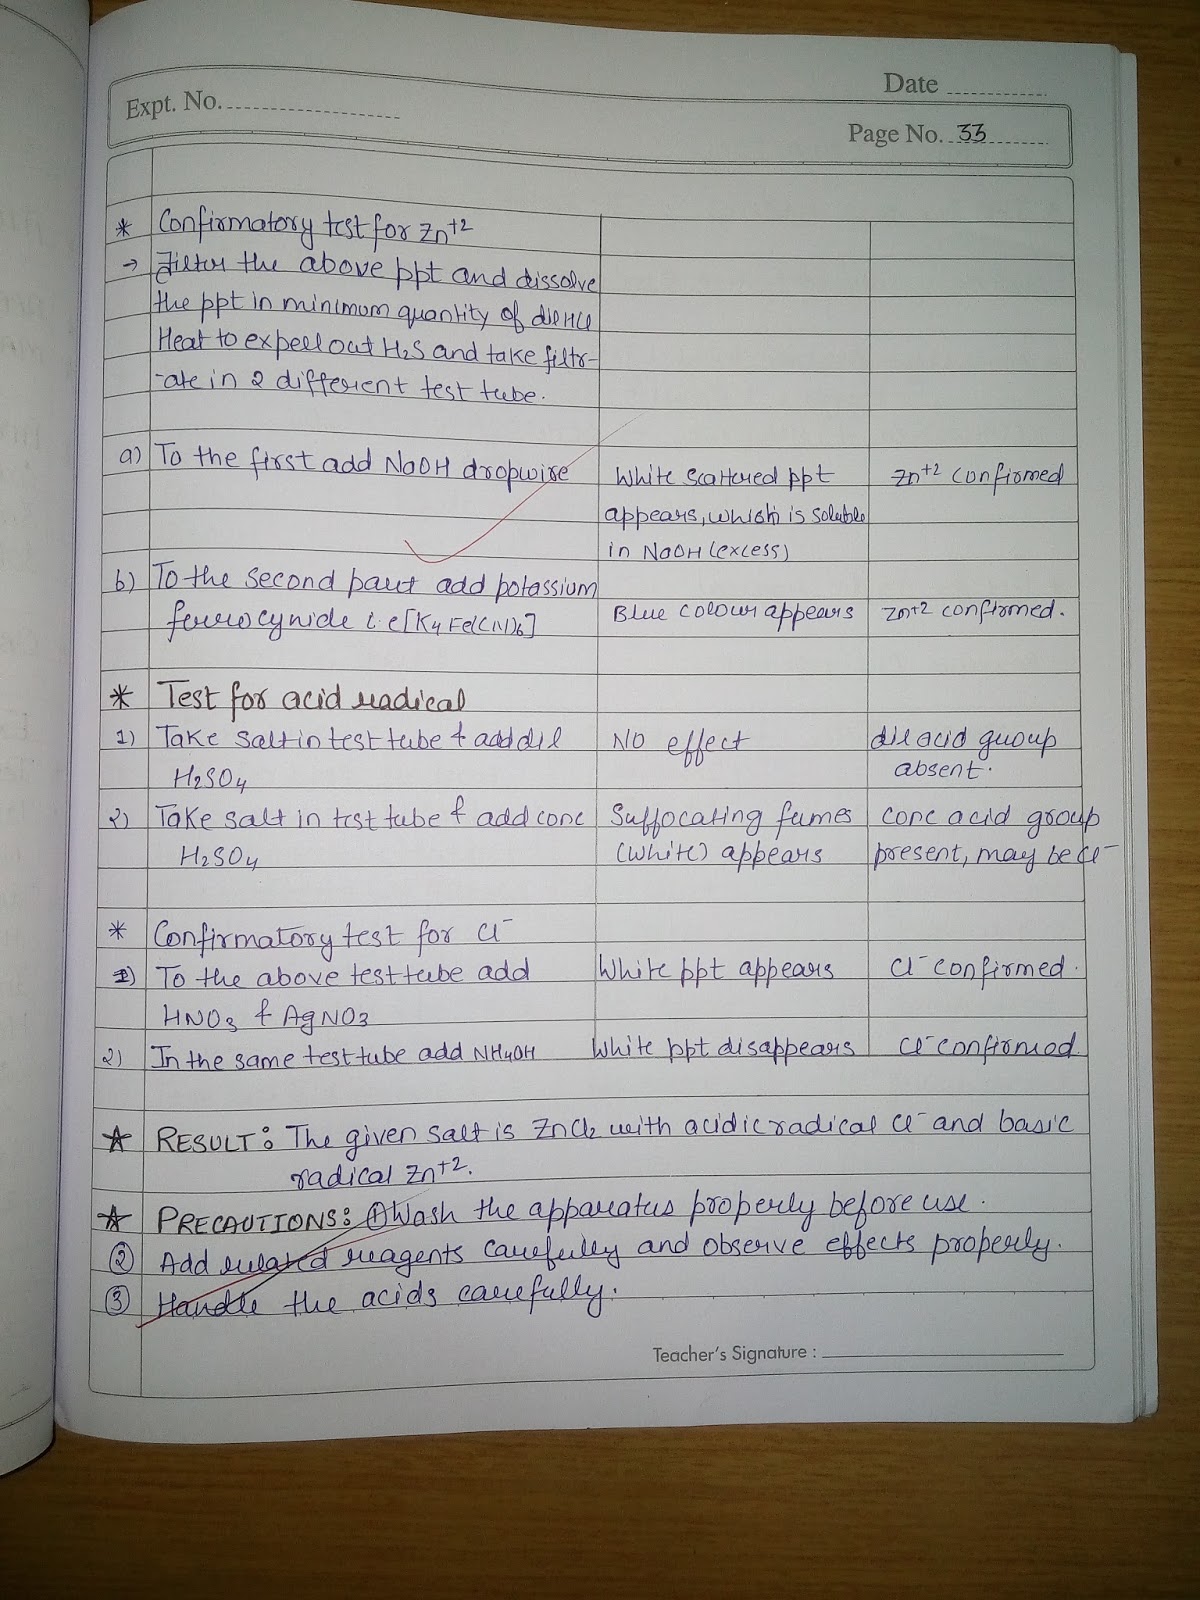 Date
Expt. No.
Page No. 33
* Confirmatory test for Zn+2
→ Filter the above ppt and dissolve
the ppt in minimum quantity of dil HCl
Heat to expell out H2S and take filtr-
-ate in 2 different test tube.
a) To the first add NaOH dropwire White scattered ppt Zn+2 confirmed
appears, which is soluble
in NaOH (excess)
b) To the second part add potassium
ferrocynide i.e [K4Fe(CN)6] Blue colour appears Zn+2 confirmed.
* Test for acid radical
1) Take salt in test tube & add dil NO effect dil acid group
H2SO4 absent.
2) Take salt in test tube & add conc Suffocating fumes conc acid group
H2SO4 (white) appears present, may be Cl-
* Confirmatory test for Cl-
1) To the above test tube add White ppt appears Cl- confirmed.
HNO3 & AgNO3
2) In the same test tube add NH4OH White ppt disappears Cl- confirmed
☆ RESULT: The given salt is ZnCl2 with acidic radical Cl- and basic
radical Zn+2.
☆ PRECAUTIONS: ① Wash the apparatus properly before use.
② Add related reagents carefully and observe effects properly.
③ Handle the acids carefully.
Teacher's Signature :